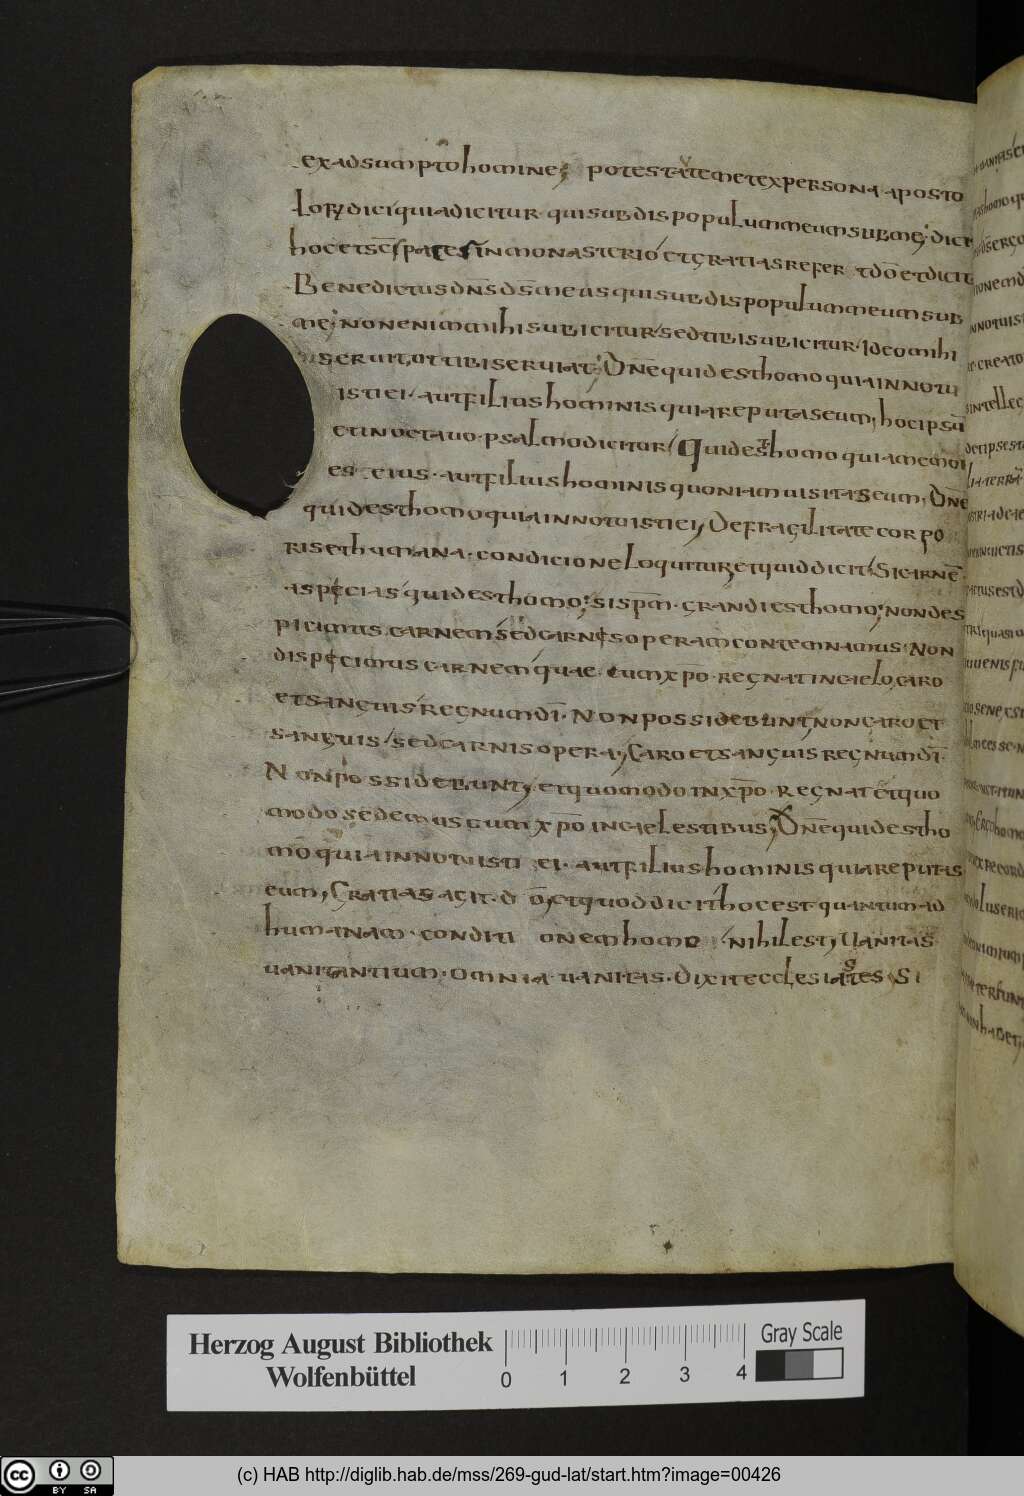 ex adsumpto homine; potestatem et ex persona aposto
lorum dici quia dicitur qui subdis populum meum sub me; dicit
hoc et sc̄s pater in monasterio et gratias refert dō et dicit
Benedictus dn̄s ds̄ meus qui subdis populum meum sub
me; non enim mihi subicitur sed tibi subicitur Ideo mihi
seruit, ut tibi seruiat; Dn̄e quid est homo quia innotu
isti ei aut filius hominis quia reputas eum, hoc ipsū
et in octauo psalmo dicitur Quid est homo qui a memor
es eius aut filius hominis quoniam uisitas eum, Dn̄e
quid est homo quia innotuisti ei, De fragilitate corpo
ris et humana condicione loquitur et quid dicit Si carnē
aspicias quid est homo; si sp̄m grandi est homo; non des
picimus carnem sed carnis opera contemnamus Non
dispecimus carnem quae cum xp̄o regnat in caelo, caro
et sanguis regnum dī Non possidebunt, non caro et
sanguis sed carnis opera, Caro et sanguis regnum dī
Non possidebunt, et quomodo in xp̄o regnat et quo
modo sedemus cum xp̄o in caelestibus, Dn̄e quid est ho
mo quia innotuisti ei aut filius hominis quia reputas
eum, Gratias agit dō, et quod dicit hoc est quantum ad
humanam conditionem homo nihil est, Uanitas
uanitantium omnia uanitas dixit ecclesiastes Si
Herzog August Bibliothek
Wolfenbüttel
0 1 2 3 4
Gray Scale
cc BY SA
(c) HAB http://diglib.hab.de/mss/269-gud-lat/start.htm?image=00426